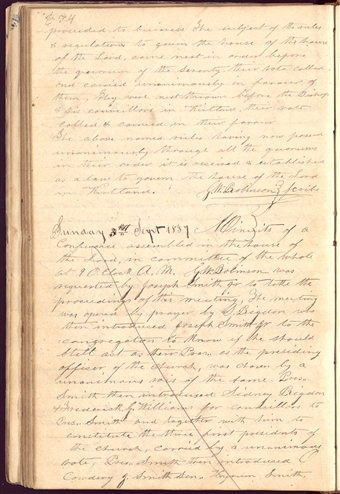 234
proceeded to business The subject of the rules
& regulations to govern the house of the
of the Lord, came next in order before
the quorum of the Seventy their vote called
and carried unanimously in favor of
them, They were next thrown before the Bishop
& his councillors in Kirtland their vote
called & carried in their favour
The above named rules having now passed
unanimously through all the quorums
in their order it is received & established
as a law to govern the house of the Lord
in Kirtland.
G W Robinson Scribe
Sunday 3rd Sept 1837 Minuets of a
Conference assembled in the house of
the Lord, in committee of the whole
at 9 O Clock A.M. G W Robinson was
requested by Joseph Smith Jr to take the
proceedings of this meeting, The meeting
was opened by prayer by S Rigdon who
then introduced Joseph Smith Jr to the
congregation to know if he should
still act as their Pres as the presiding
officer of the church, was chosen by a
unanimous vote of the same Pres
Smith then introduced Sidney Rigdon
& Frederick G Williams for councillor to
Pres. Smith and together with him to
constitute the three first presidents of
the church, carried by a unanimous
vote, Pres. Smith then introduced O
Cowdery J. Smith Sen. Hyrum Smith,